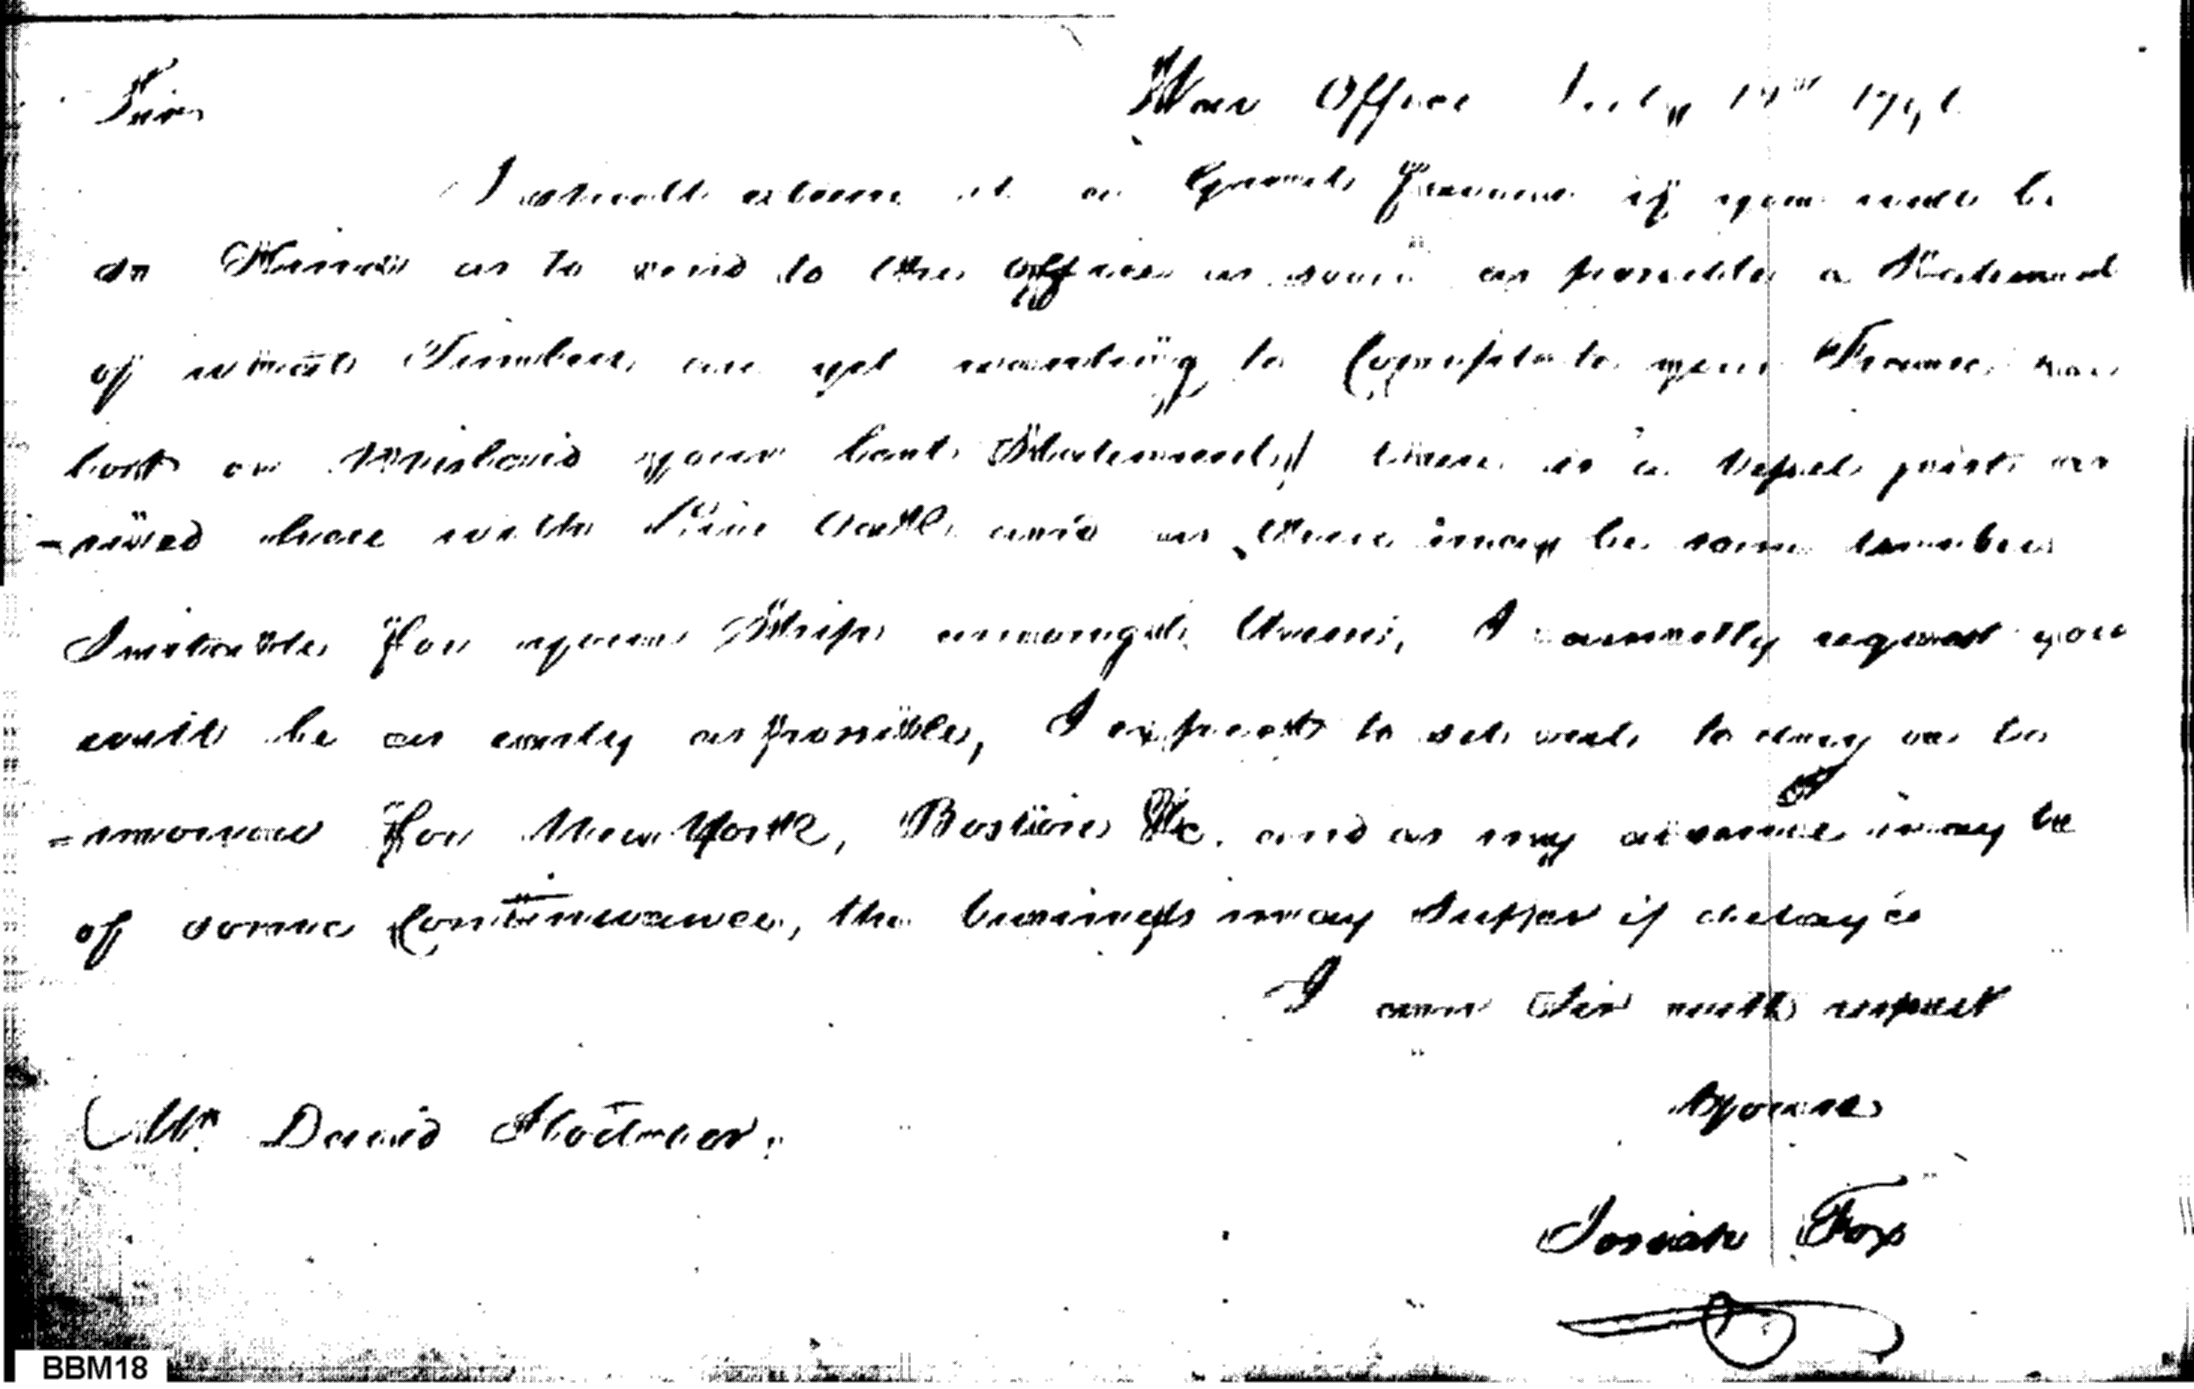 Sir War Office July 14th 179
I shall esteem it a Great favour if you will be
so Kind as to send to the Office as soon as possible a Statement
of what Timbers are yet wanting to Compleate your Frame,
lost or Mislaid your last Statement, there is a Vessel just ar
-rived here with Live Oak and as there may be some timbers
Suitable for your Ship amongst them, I earnestly request you
will be as early as possible, I expect to set out to day or to
=morrow for New York, Boston &c. and as my absence may be
of some Continuance, the business may suffer if delay'd
I am Sir with respect
Yours
Mr. David Stodder.
Josiah Fox
BBM18